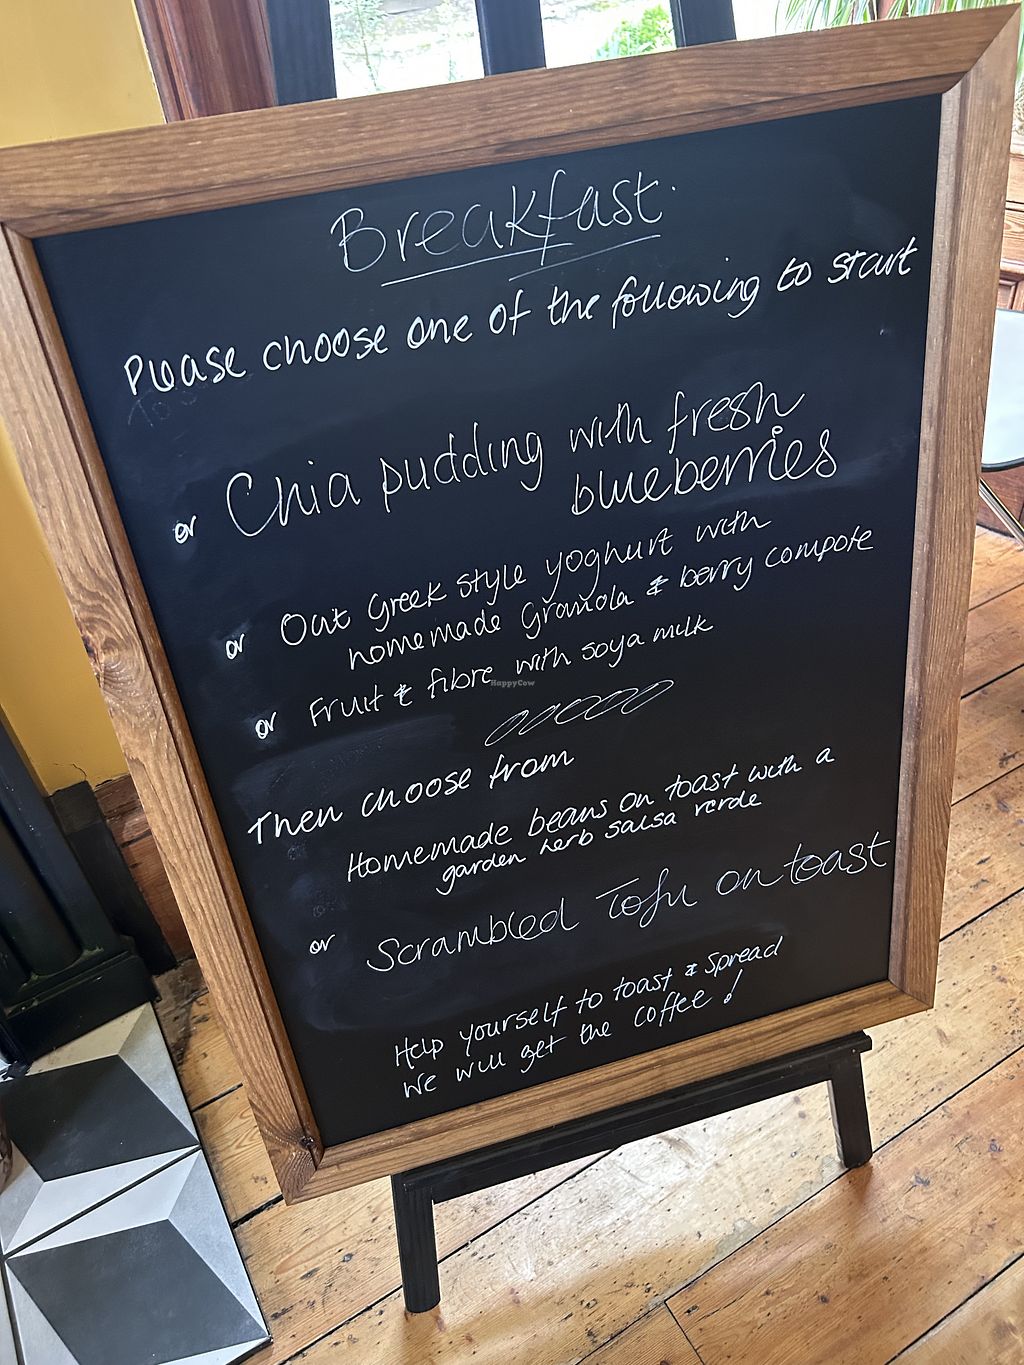 Breakfast.
Please choose one of the following to start
or Chia pudding with fresh
blueberries
or Oat Greek style yoghurt with
homemade granola & berry compote
or Fruit & fibre with soya milk
HappyCow
Then choose from
Homemade beans on toast with a
garden herb salsa verde
or Scrambled Tofu on toast
Help yourself to toast & spread
We will get the coffee!